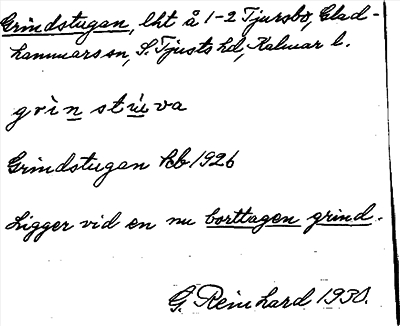 Grindstugan, lht å 1-2 Tjursbo, Glad-
hammars sn, S. Tjusts hd, Kalmar l.
grìn stúva
Grindstugan kb 1926
Ligger vid en nu borttagen grind.
G. Reinhard 1930.